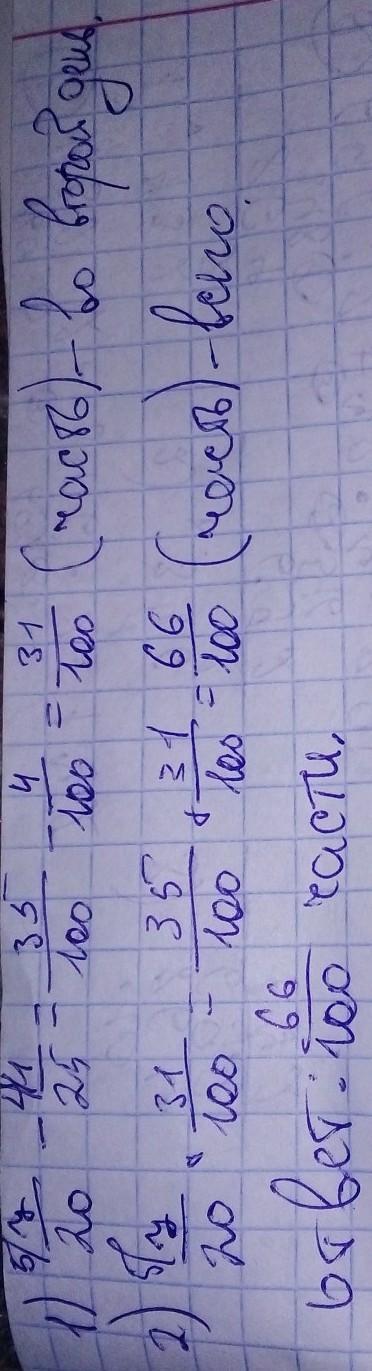 1) 5/7/20 - 4/1/25 = 35/100 - 4/100 = 31/100 (часть) - во второй день.
2) 5/7/20 + 31/100 = 35/100 + 31/100 = 66/100 (часть) - всего.
Ответ: 66/100 части.